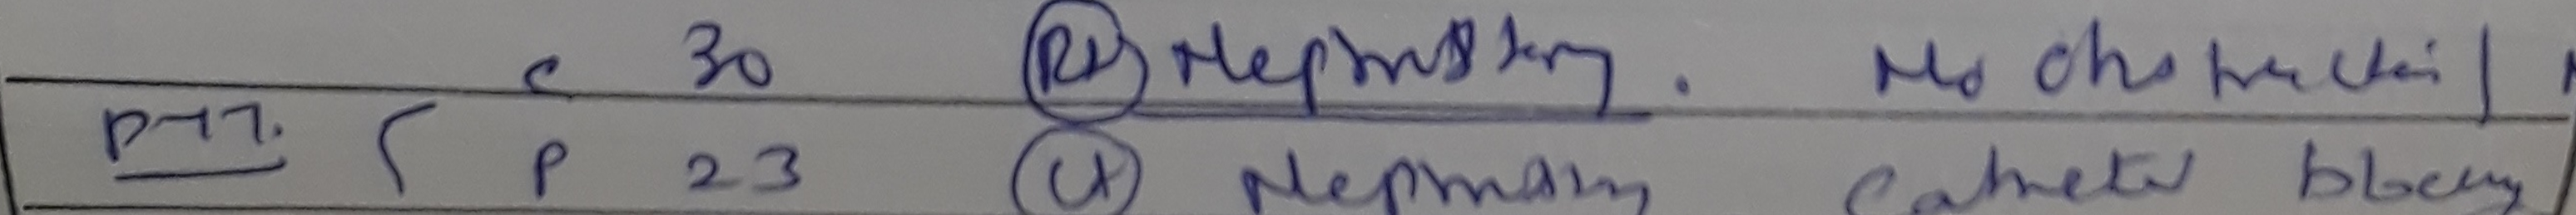 c 30 Rt Nephrostomy. No obstruction |
P 23 Lt Nephrostomy Catheter